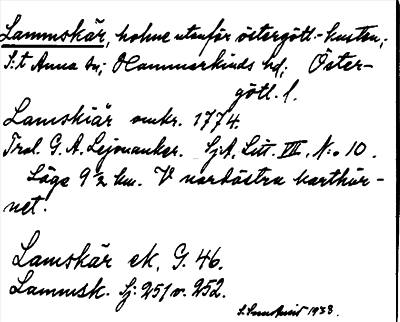 Lammskär, holme utanför östergötl.-kusten;
S:t Anna sn; Hammarkinds hd; Öster-
götl. l.
Lamskiär omkr. 1774.
Trol. G. A. Lejonanker. SjA, Litt. VII, N:o 10.
Läge 9½ km. V nordöstra karthör-
net.
Lamskär ek. G. 46.
Lammsk. Sj: 251 o. 252.
1933.